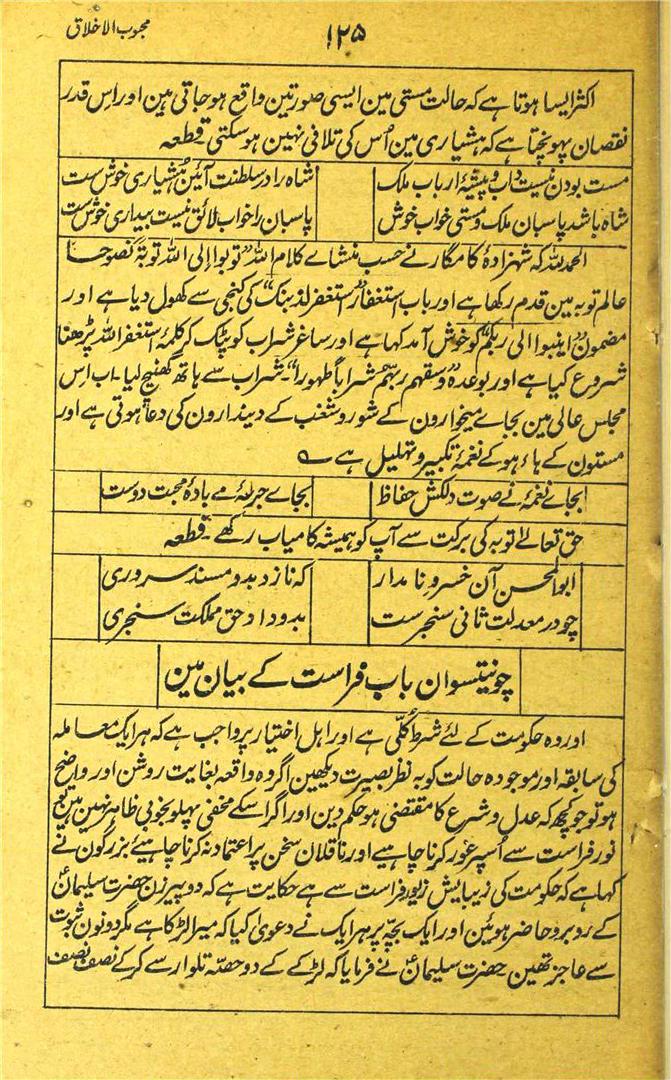 محبوب الاخلاق
۱۲۵
اکثر ایسا ہوتا ہے کہ حالت مستی مین ایسی صورتین واقع ہو جاتی ہین اور اس قدر
نقصان پہونچتا ہے کہ ہشیاری مین اُس کی تلافی نہین ہو سکتی۔ قطعہ
مست بودن نیست داب و پیشۂ ارباب ملک شاہ را در سلطنت آئین ہُشیاری خوش ست
شاہ باشد پاسبان ملک و مستی خواب خوش پاسبان را خواب لائق نیست بیداری خوش ست
الحمد للہ کہ شہزادۂ کامگار نے حسب منشاے کلام اللہ توبوا الی اللہ توبۃ نصوحا
عالم توبہ مین قدم رکھا ہے اور باب استغفار استغفر لذنبک کی کنجی سے کھول دیا ہے اور
مضمون انیبوا الی ربکم کو خوش آمد کہا ہے اور ساغر شراب کو پٹک کر کلمۂ استغفر اللہ پڑھنا
شروع کیا ہے اور بوعدہ وسقٰہم ربہم شراباً طہورا۔ شراب سے ہاتھ کھینچ لیا۔ اب اس
مجلس عالی مین بجاے میخوارون کے شور و شغب کے دیندارون کی دعا ہوتی ہے اور
مستون کے ہاے ہو کے نغمۂ تکبیر و تہلیل ہے ؎
بجاے نغمۂ نے صوت دلکش حفاظ بجاے جرعۂ مے بادۂ محبت دوست
حق تعالےٰ توبہ کی برکت سے آپ کو ہمیشہ کامیاب رکھے۔ قطعہ
ابوالمحسن آن خسرو نامدار کہ نازد بدو مسند سروری
چو در معدلت ثانی سنجرست بدو داد حق مملکت سنجری
چونتیسوان باب فراست کے بیان مین
اور وہ حکومت کے لئے شرط کُلّی ہے اور اہل اختیار پر واجب ہے کہ ہر ایک معاملہ
کی سابقہ اور موجودہ حالت کو بہ نظر بصیرت دیکھین اگر وہ واقعہ بغایت روشن اور واضح
ہو تو جو کچھ کہ عدل و شرع کا مقتضی ہو حکم دین اور اگر اسکے مخفی پہلو بخوبی ظاہر نہین ہین تو
نور فراست سے اُسپر غور کرنا چاہیے اور ناقلان سخن پر اعتماد نہ کرنا چاہیئے بزرگون نے
کہا ہے کہ حکومت کی زیبایش زیور فراست سے ہے حکایت ہے کہ دو پیرزن حضرت سلیمانؑ
کے روبرو حاضر ہوئین اور ایک بچّہ پر ہر ایک نے دعویٰ کیا کہ میرا لڑکا ہے مگر دونون ثبوت
سے عاجز تھین۔ حضرت سلیمانؑ نے فرمایا کہ لڑکے کے دو حصّہ تلوار سے کر کے نصف نصف